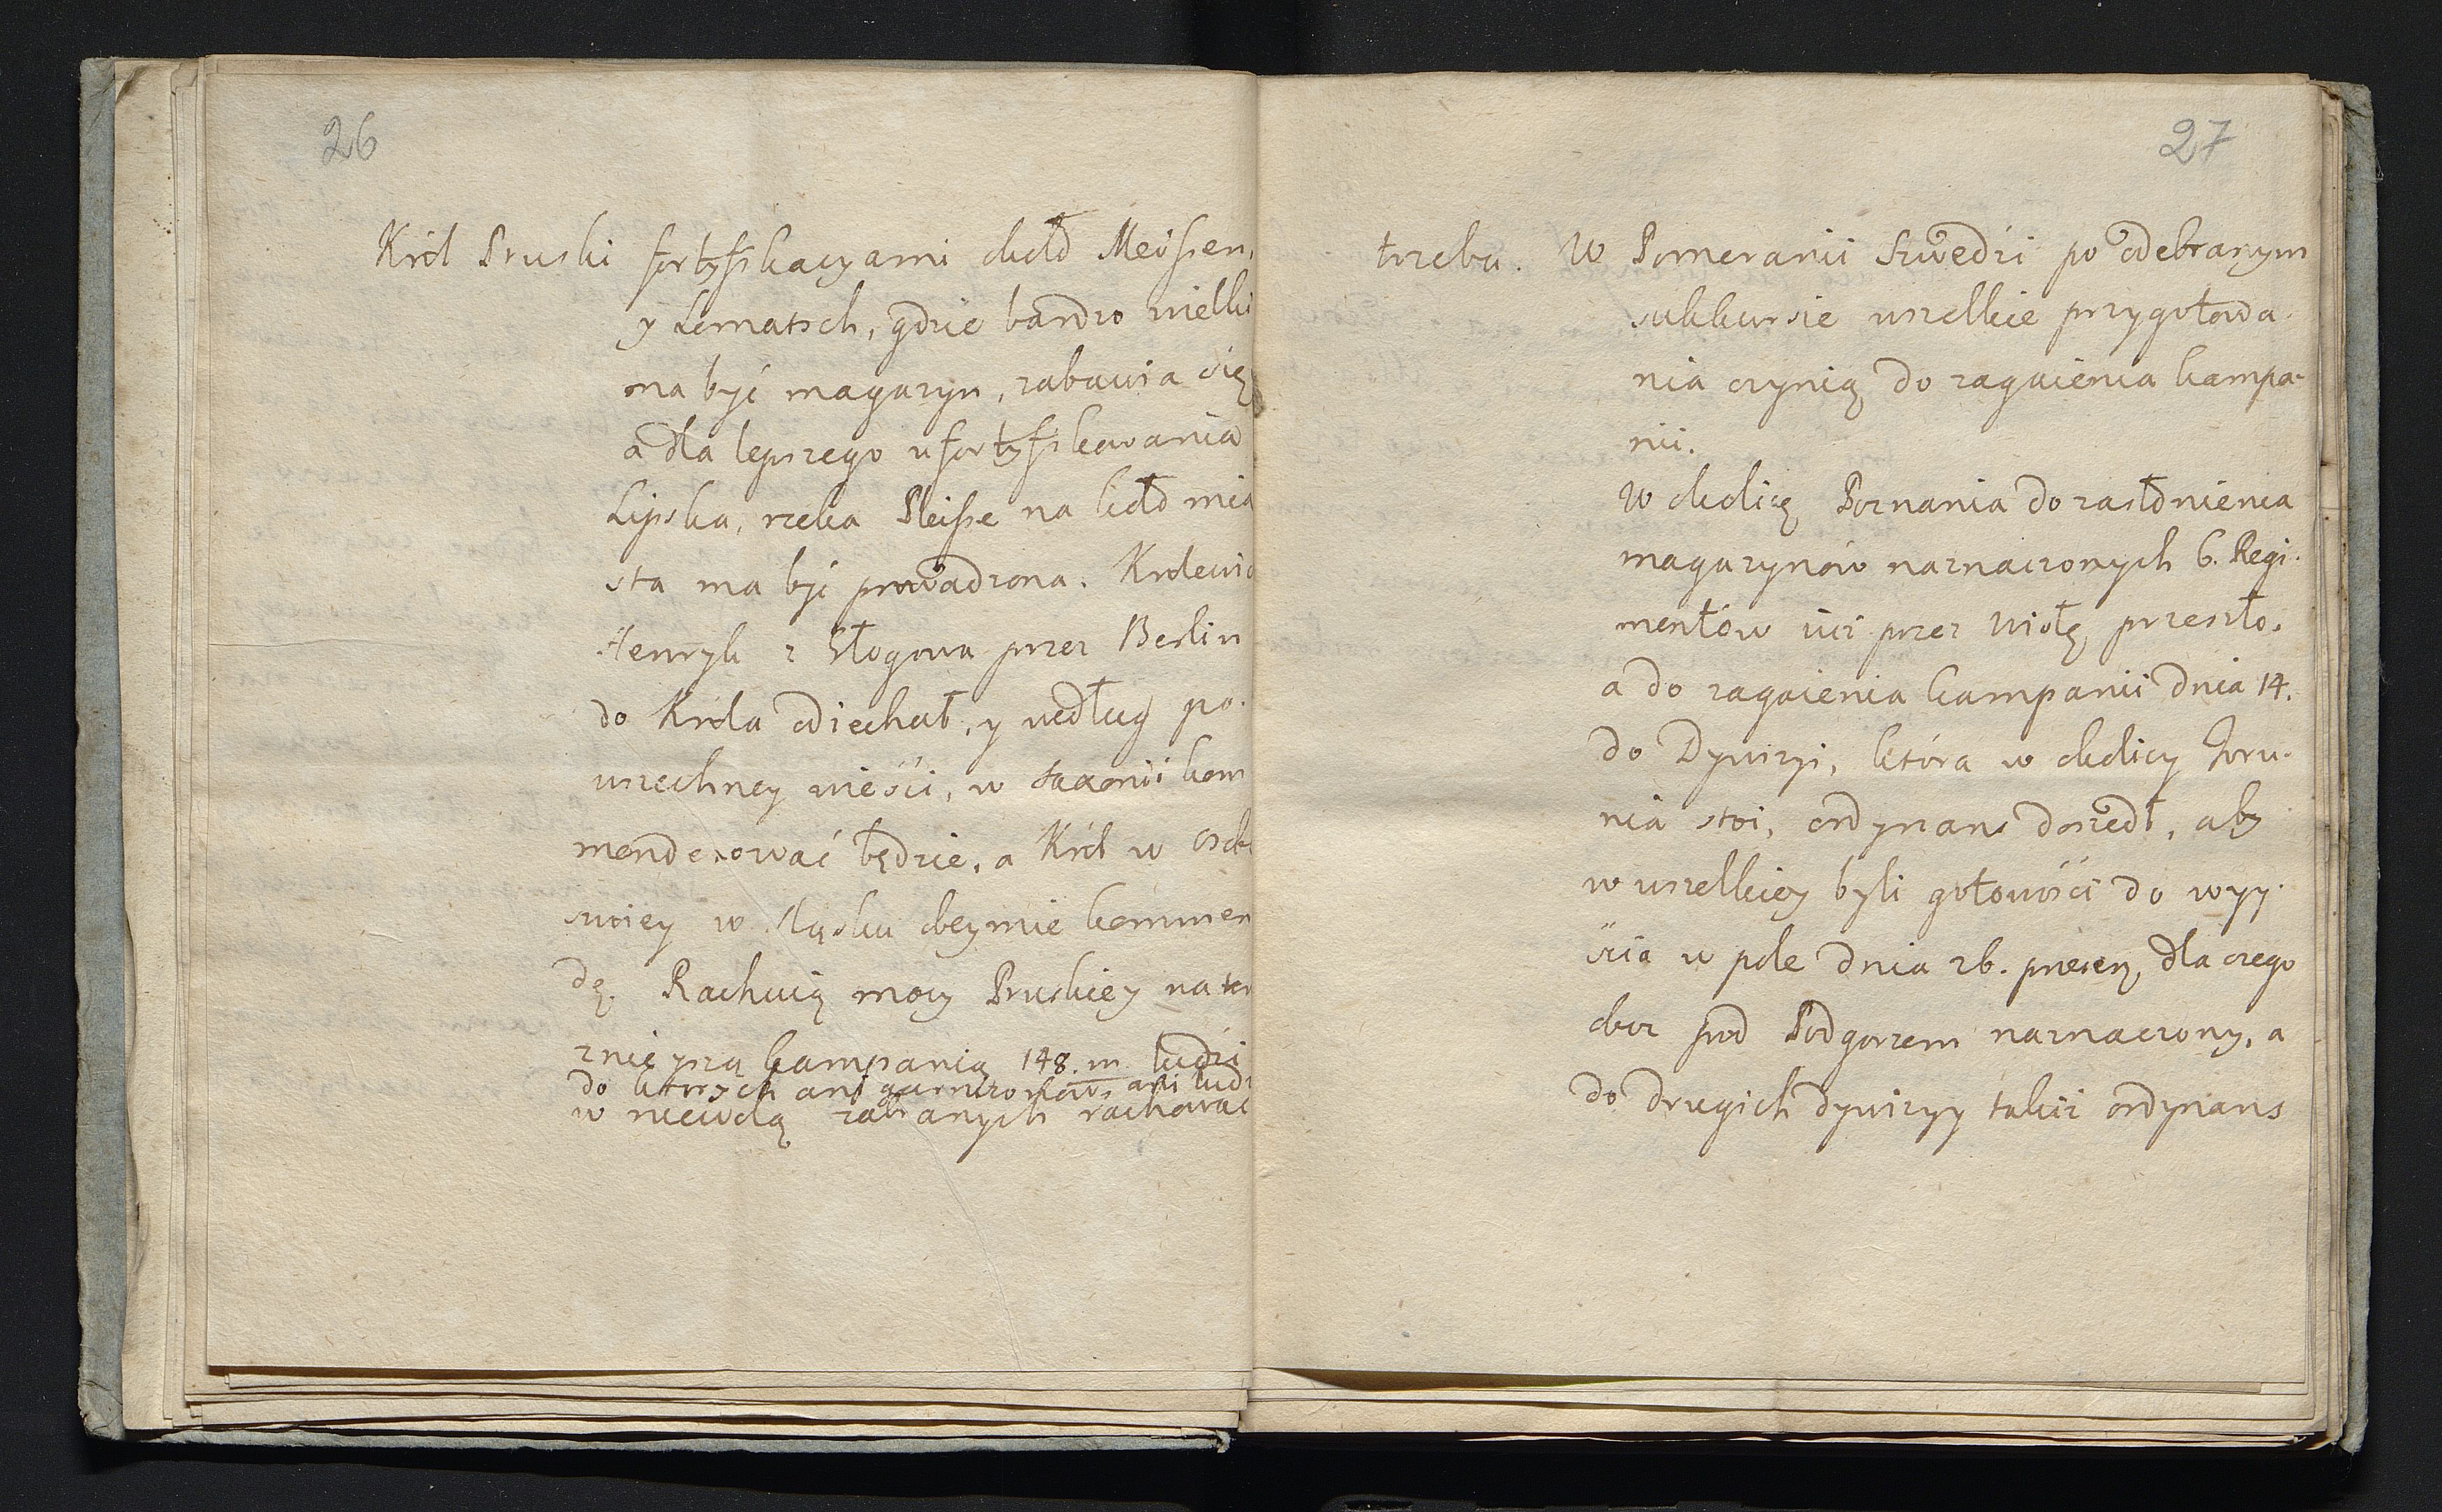 26
Król Pruski fortyfikacyami około Meissen,
y Lomatsch, gdzie bardzo wielki
ma być magazyn, zabawia się
a dla lepszego ufortyfikowania
Lipska, rzeka Pleisse na koło mia
sta ma być prowadzona. Krolewic
Henryk z Głogowa przez Berlin
do Krola odiechał, y według po-
wszechney wieści, w Saxonii kom
menderować będzie, a Król w osob
swoiey w Sląsku obeymie kommen
dę. Rachuią mocy Pruskiey na te
znieyszą kampanią 148. m ludzi
do ktorych ani garnizonów, ani ludz
w niewolą zabranych rachować
27
trzeba. W Pomeranii Szwedzi po odebranym
sukkursie wszelkie przygotowa-
nia czynią do zagaienia kampa-
nii.
W okolicę Poznania do zasłonienia
magazynów naznaczonych 6. Regi-
mentów iuż przez Wisłę przeszło.
a do zagaienia kampanii dnia 14.
do Dywizyi, która w okolicy Toru-
nia stoi, ordynans doszedł, aby
w wszelkiey byli gotowości do wyy-
ścia w pole dnia 26. presen, dla czego
oboz pod Podgorzem naznaczony, a
do drugich dywizyy takiż ordynans